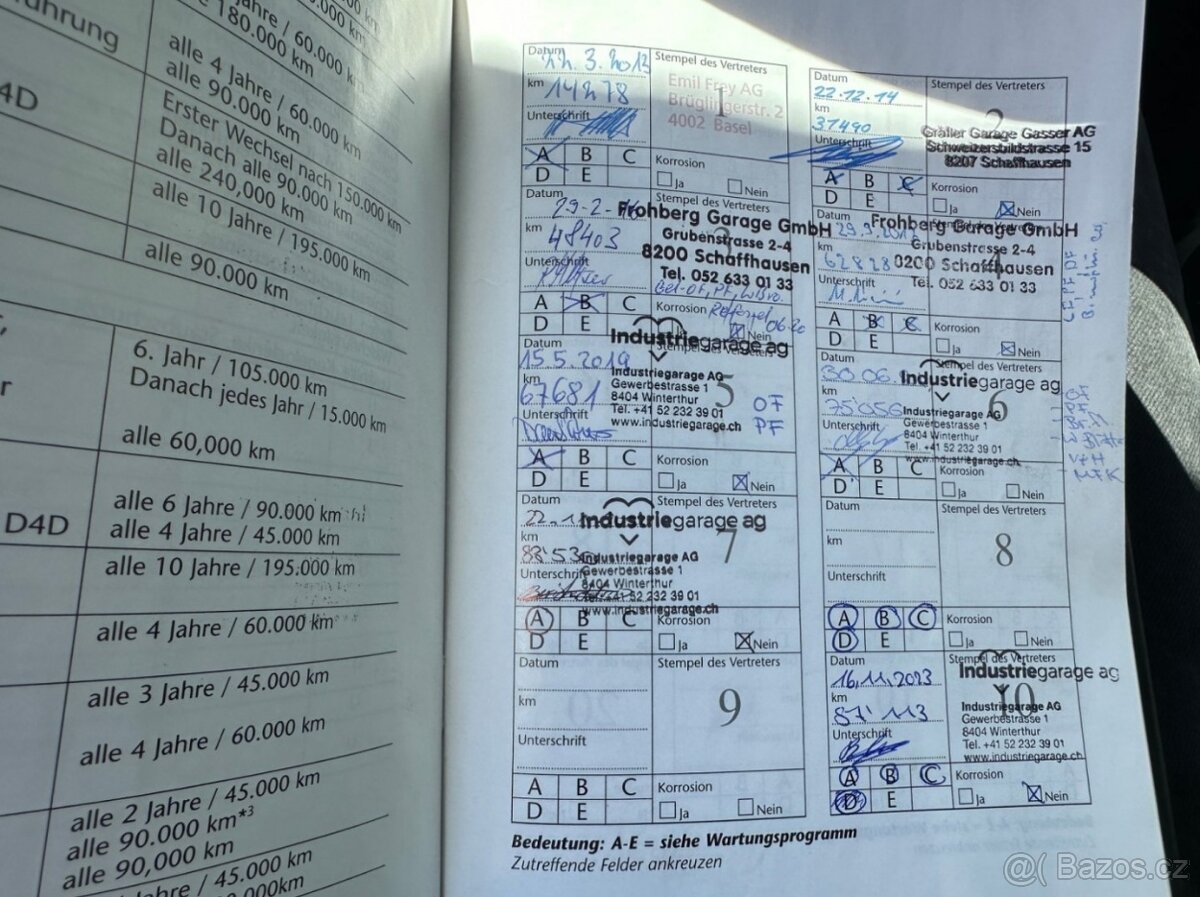 führung
Jahre / 60.000 km
180.000 km
alle 4 Jahre / 60.000 km
alle 90.000 km
4D
Erster Wechsel nach 150.000 km
Danach alle 90.000 km
alle 240,000 km
alle 10 Jahre / 195.000 km
alle 90.000 km
6. Jahr / 105.000 km
Danach jedes Jahr / 15.000 km
alle 60,000 km
alle 6 Jahre / 90.000 km
D4D
alle 4 Jahre / 45.000 km
alle 10 Jahre / 195.000 km
alle 4 Jahre / 60.000 km
alle 3 Jahre / 45.000 km
alle 4 Jahre / 60.000 km
alle 2 Jahre / 45.000 km
alle 90.000 km*3
alle 90,000 km
Jahre / 45.000 km
Datum
3. 2013
km
Unterschrift
Stempel des Vertreters
1
Emil Frey AG
Brüglingerstr. 2
4002 Basel
A B C
D E
Korrosion
Ja Nein
Datum
22.12.14
km
37490
Unterschrift
Stempel des Vertreters
2
Gräfler Garage Gasser AG
Schweizersbildstrasse 15
8207 Schaffhausen
A B C
D E
Korrosion
Ja Nein
Datum
29-2-
km
48403
Unterschrift
Stempel des Vertreters
Frohberg Garage GmbH
Grubenstrasse 2-4
8200 Schaffhausen
Tel. 052 633 01 33
A B C
D E
Korrosion
Nein
Datum
29.9.
km
62828
Unterschrift
Frohberg Garage GmbH
Grubenstrasse 2-4
8200 Schaffhausen
Tel. 052 633 01 33
A B C
D E
Korrosion
Ja Nein
Datum
15.5.2019
km
67681
Unterschrift
5
Industriegarage ag
Industriegarage AG
Gewerbestrasse 1
8404 Winterthur
Tel. +41 52 232 39 01
www.industriegarage.ch
OF
PF
A B C
D E
Korrosion
Ja Nein
Datum
30 06.
km
75'056
Unterschrift
Stempel des Vertreters
6
Industriegarage ag
Industriegarage AG
Gewerbestrasse 1
8404 Winterthur
Tel. +41 52 232 39 01
www.industriegarage.ch
A B C
D E
Korrosion
Ja Nein
Datum
22.
km
88'53
Unterschrift
Stempel des Vertreters
7
Industriegarage ag
Industriegarage AG
Gewerbestrasse 1
8404 Winterthur
Tel. +41 52 232 39 01
www.industriegarage.ch
A B C
D E
Korrosion
Ja Nein
Datum
km
Unterschrift
Stempel des Vertreters
8
A B C
D E
Korrosion
Ja Nein
Datum
km
Unterschrift
Stempel des Vertreters
9
A B C
D E
Korrosion
Ja Nein
Datum
16.11.2023
km
87'113
Unterschrift
Stempel des Vertreters
10
Industriegarage ag
Industriegarage AG
Gewerbestrasse 1
8404 Winterthur
Tel. +41 52 232 39 01
www.industriegarage.ch
A B C
D E
Korrosion
Ja Nein
Bedeutung: A-E = siehe Wartungsprogramm
Zutreffende Felder ankreuzen
@( Bazos.cz